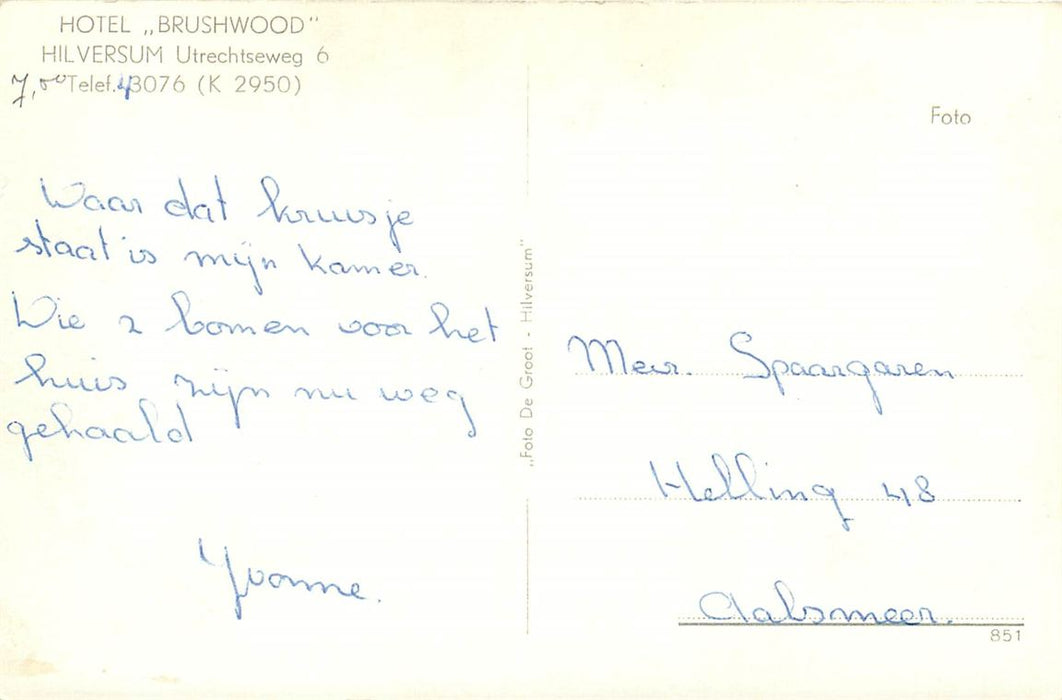 HOTEL „BRUSHWOOD"
HILVERSUM Utrechtseweg 6
7,50 Telef. 43076 (K 2950)
Foto
Waar dat kruisje
staat is mijn kamer.
Die 2 bomen voor het
huis zijn nu weg
gehaald
Yvonne.
„Foto De Groot - Hilversum"
Mevr. Spaargaren
Helling 48
Aalsmeer.
851